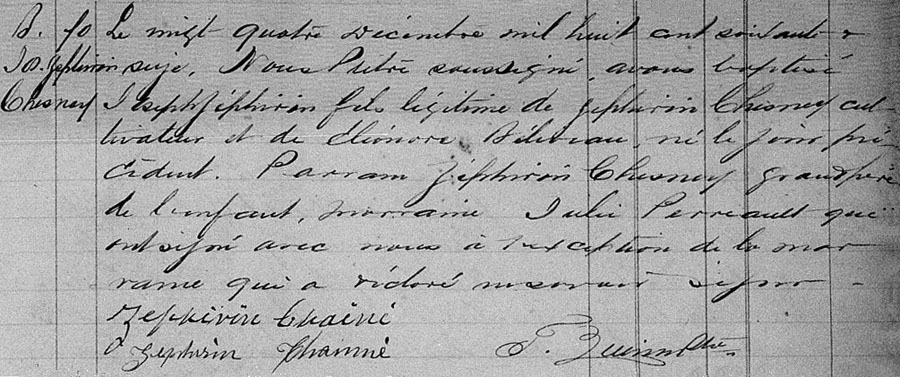 B. 70 Le vingt quatre Décembre mil huit cent soixante &
Jos. Zephirin seize, Nous Prêtre soussigné, avons baptisé
Chesney Joseph Zéphirin fils légitime de Zephirin Chesney cul-
tivateur et de Eléonore Béliveau, né le jour pré-
cédent. Parrain Zéphirin Chesney grand père
de l'enfant, marraine Julie Perreault qui
ont signé avec nous à l'exception de la mar-
raine qui a déclaré ne savoir signer -
Zephirin Chainé
Zephirin Chainné T. Ptre